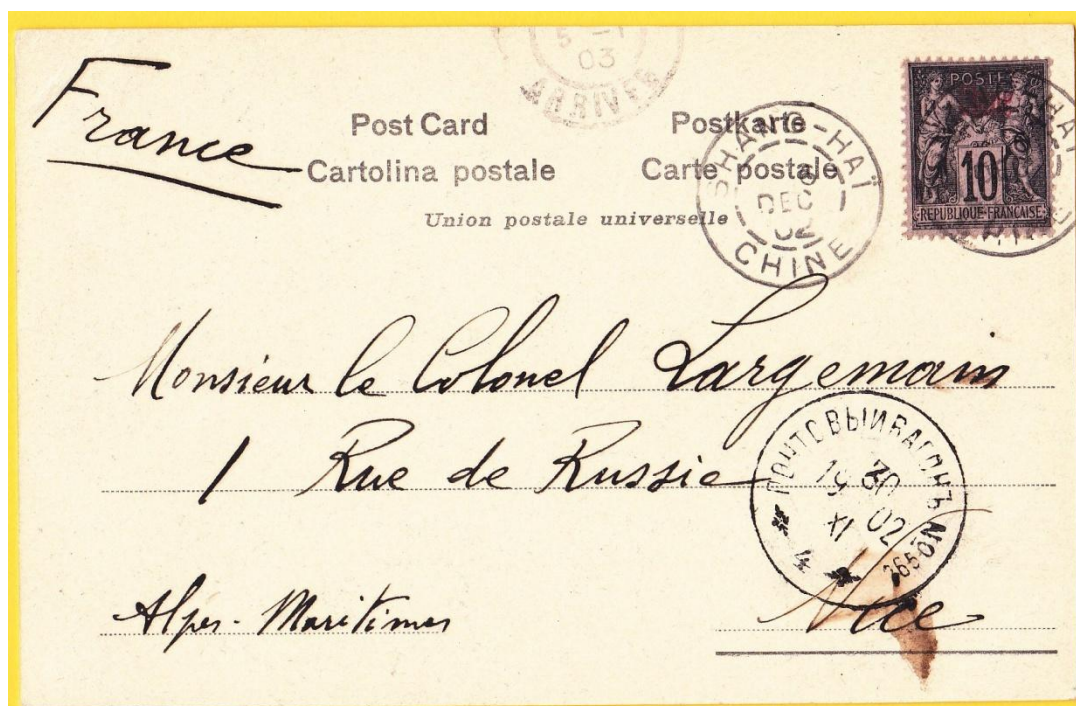 5 -1
03
ARRIVEE
France
Post Card Postkarte
Cartolina postale Carte postale
Union postale universelle
SHANG-HAÏ
DEC
02
CHINE
POSTE
10
REPUBLIQUE FRANÇAISE
Monsieur le Colonel Largemain
1 Rue de Russie
ПОЧТОВЫЙ ВАГОНЪ №
19 30
XI 02
4
Alpes-Maritimes Nice